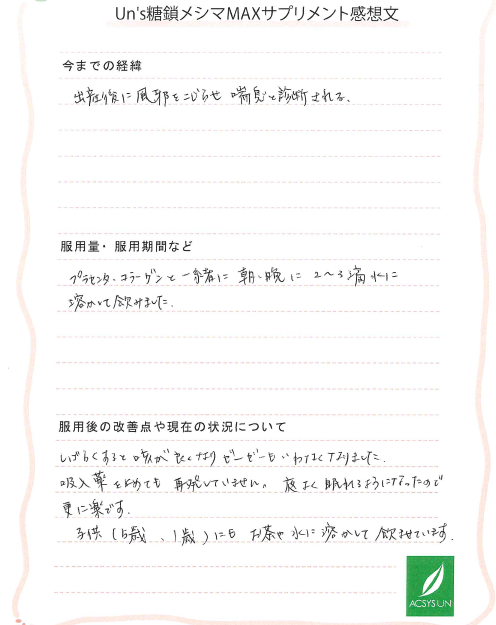 Un's糖鎖メシマMAXサプリメント感想文
今までの経緯
出産後に風邪をこじらせ 喘息と診断される、
服用量・服用期間など
プラセンタ、コラーゲンと一緒に 朝、晩に 2〜3滴水に
溶かして飲みました.
服用後の改善点や現在の状況について
しばらくすると咳が良くなり ゼーゼーもいわなくなりました.
吸入薬を止めても 再発していません。 夜よく眠れるようになったので
更に楽です.
子供(5歳、1歳)にも お茶や水に溶かして飲ませています.
ACSYS UN